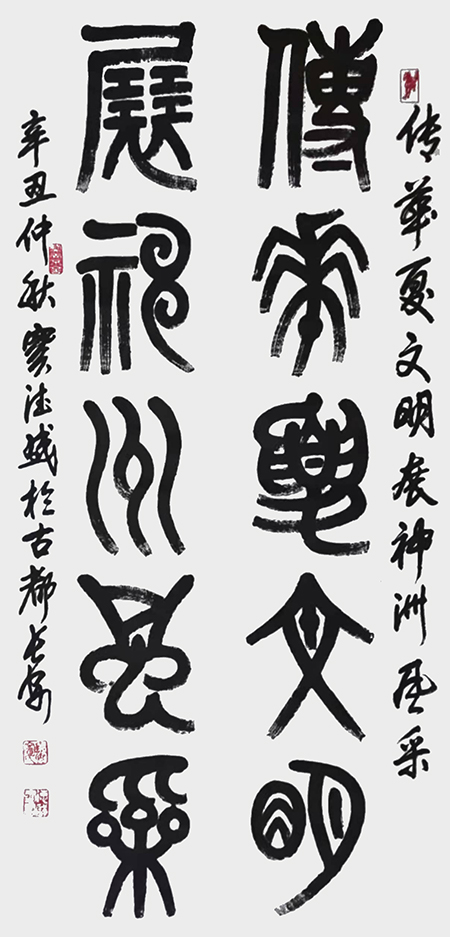 传华夏文明展神洲风采
傳華夏文明
展神州風采
辛丑仲秋於古都长安